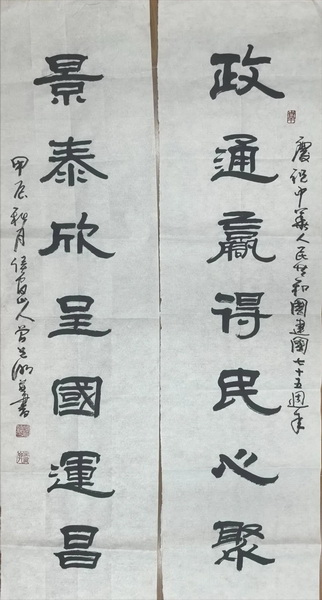 慶祝中華人民共和國建國七十五週年
政通贏得民心聚
景泰欣呈國運昌
甲辰秋月
山人曾
書